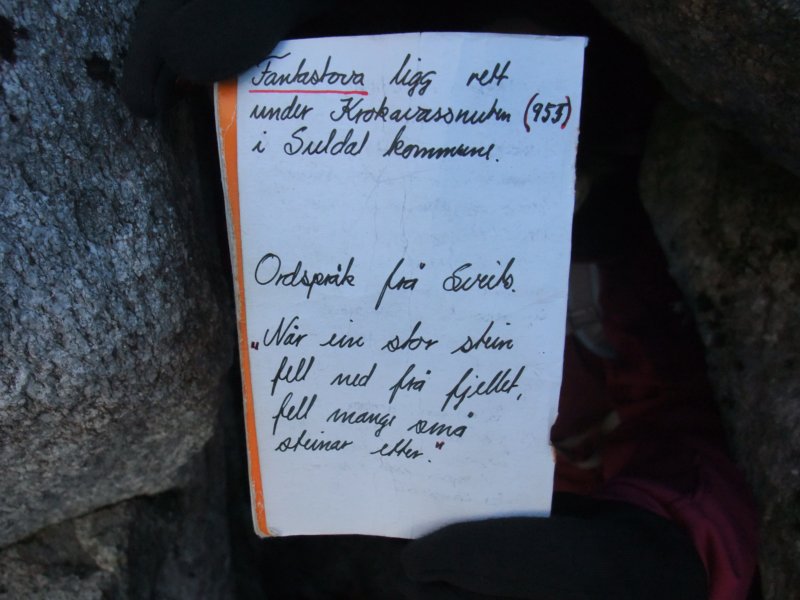 Fantastova ligg rett
under Krokavassnuten (953)
i Suldal kommune.
Ordspråk frå Sveio.
„Når ein stor stein
fell ned frå fjellet,
fell mange små
steinar etter."